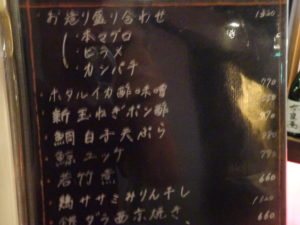 お造り盛り合わせ 1320
・本マグロ
・ヒラメ
・カンパチ
・ホタルイカ酢味噌 770
・新玉ねぎポン酢
・鯛白子天ぷら
・鯨ユッケ
・若竹煮 660
・鶏ササミみりん干し
・銀ダラ西京焼き 660